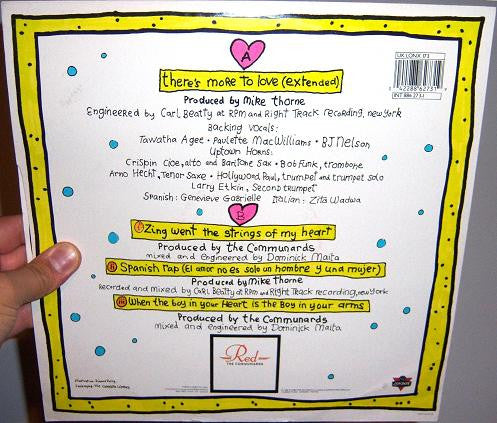 UK LONX 173
5 042288 627319
INT 886 273-1
A
there's more to love (extended)
Produced by Mike Thorne
Engineered by Carl Beatty at RPM and Right Track recording, new York
Backing vocals:
Tawatha Agee · Paulette MacWilliams · BJ Nelson
Uptown Horns:
Crispin Cioe, alto and Baritone Sax · Bob Funk, trombone
Arno Hecht, Tenor Saxe · Hollywood Paul, trumpet and trumpet solo
Larry Etkin, Second trumpet
Spanish: Genevieve Gabrielle Italian: Zita Wadwa
B
i Zing went the strings of my heart
Produced by the Communards
mixed and Engineered by Dominick Maita
ii Spanish rap (El amor no es solo un hombre y una mujer)
Produced by Mike Thorne
Recorded and mixed by Carl Beatty at RPM and Right Track recording, new York
iii When the boy in your Heart is the Boy in your arms
Produced by the Communards
mixed and engineered by Dominick Maita
Red
THE COMMUNARDS